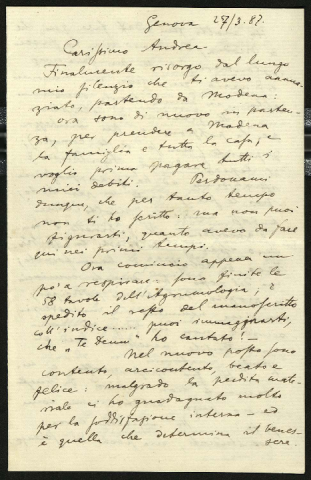 Genova 27/3.87.
Carissimo Andrea
Finalmente risorgo dal lungo
mio silenzio che ti avevo annun-
ziato, partendo da Modena:
ora sono di nuovo in parten-
za, per prendere a Modena
la famiglia e tutta la casa, e
voglio prima pagare tutti i
miei debiti. Perdonami
dunque, che per tanto tempo
non ti ho scritto: ma non puoi
figurarti, quanto avevo da fare
qui nei primi tempi.
Ora comincio appena un
po' a respirare: sono finite le
58 tavole dell'Agrumologia; è
spedito il resto del manoscritto
coll'indice..... puoi immaginarti,
che "te deum" ho cantato! —
Nel nuovo posto sono
contento, arcicontento, beato e
felice: malgrado la perdita mate-
riale ci ho guadagnato molto
per la soddisfazione interna — ed
è quella che determina il benes-
sere.